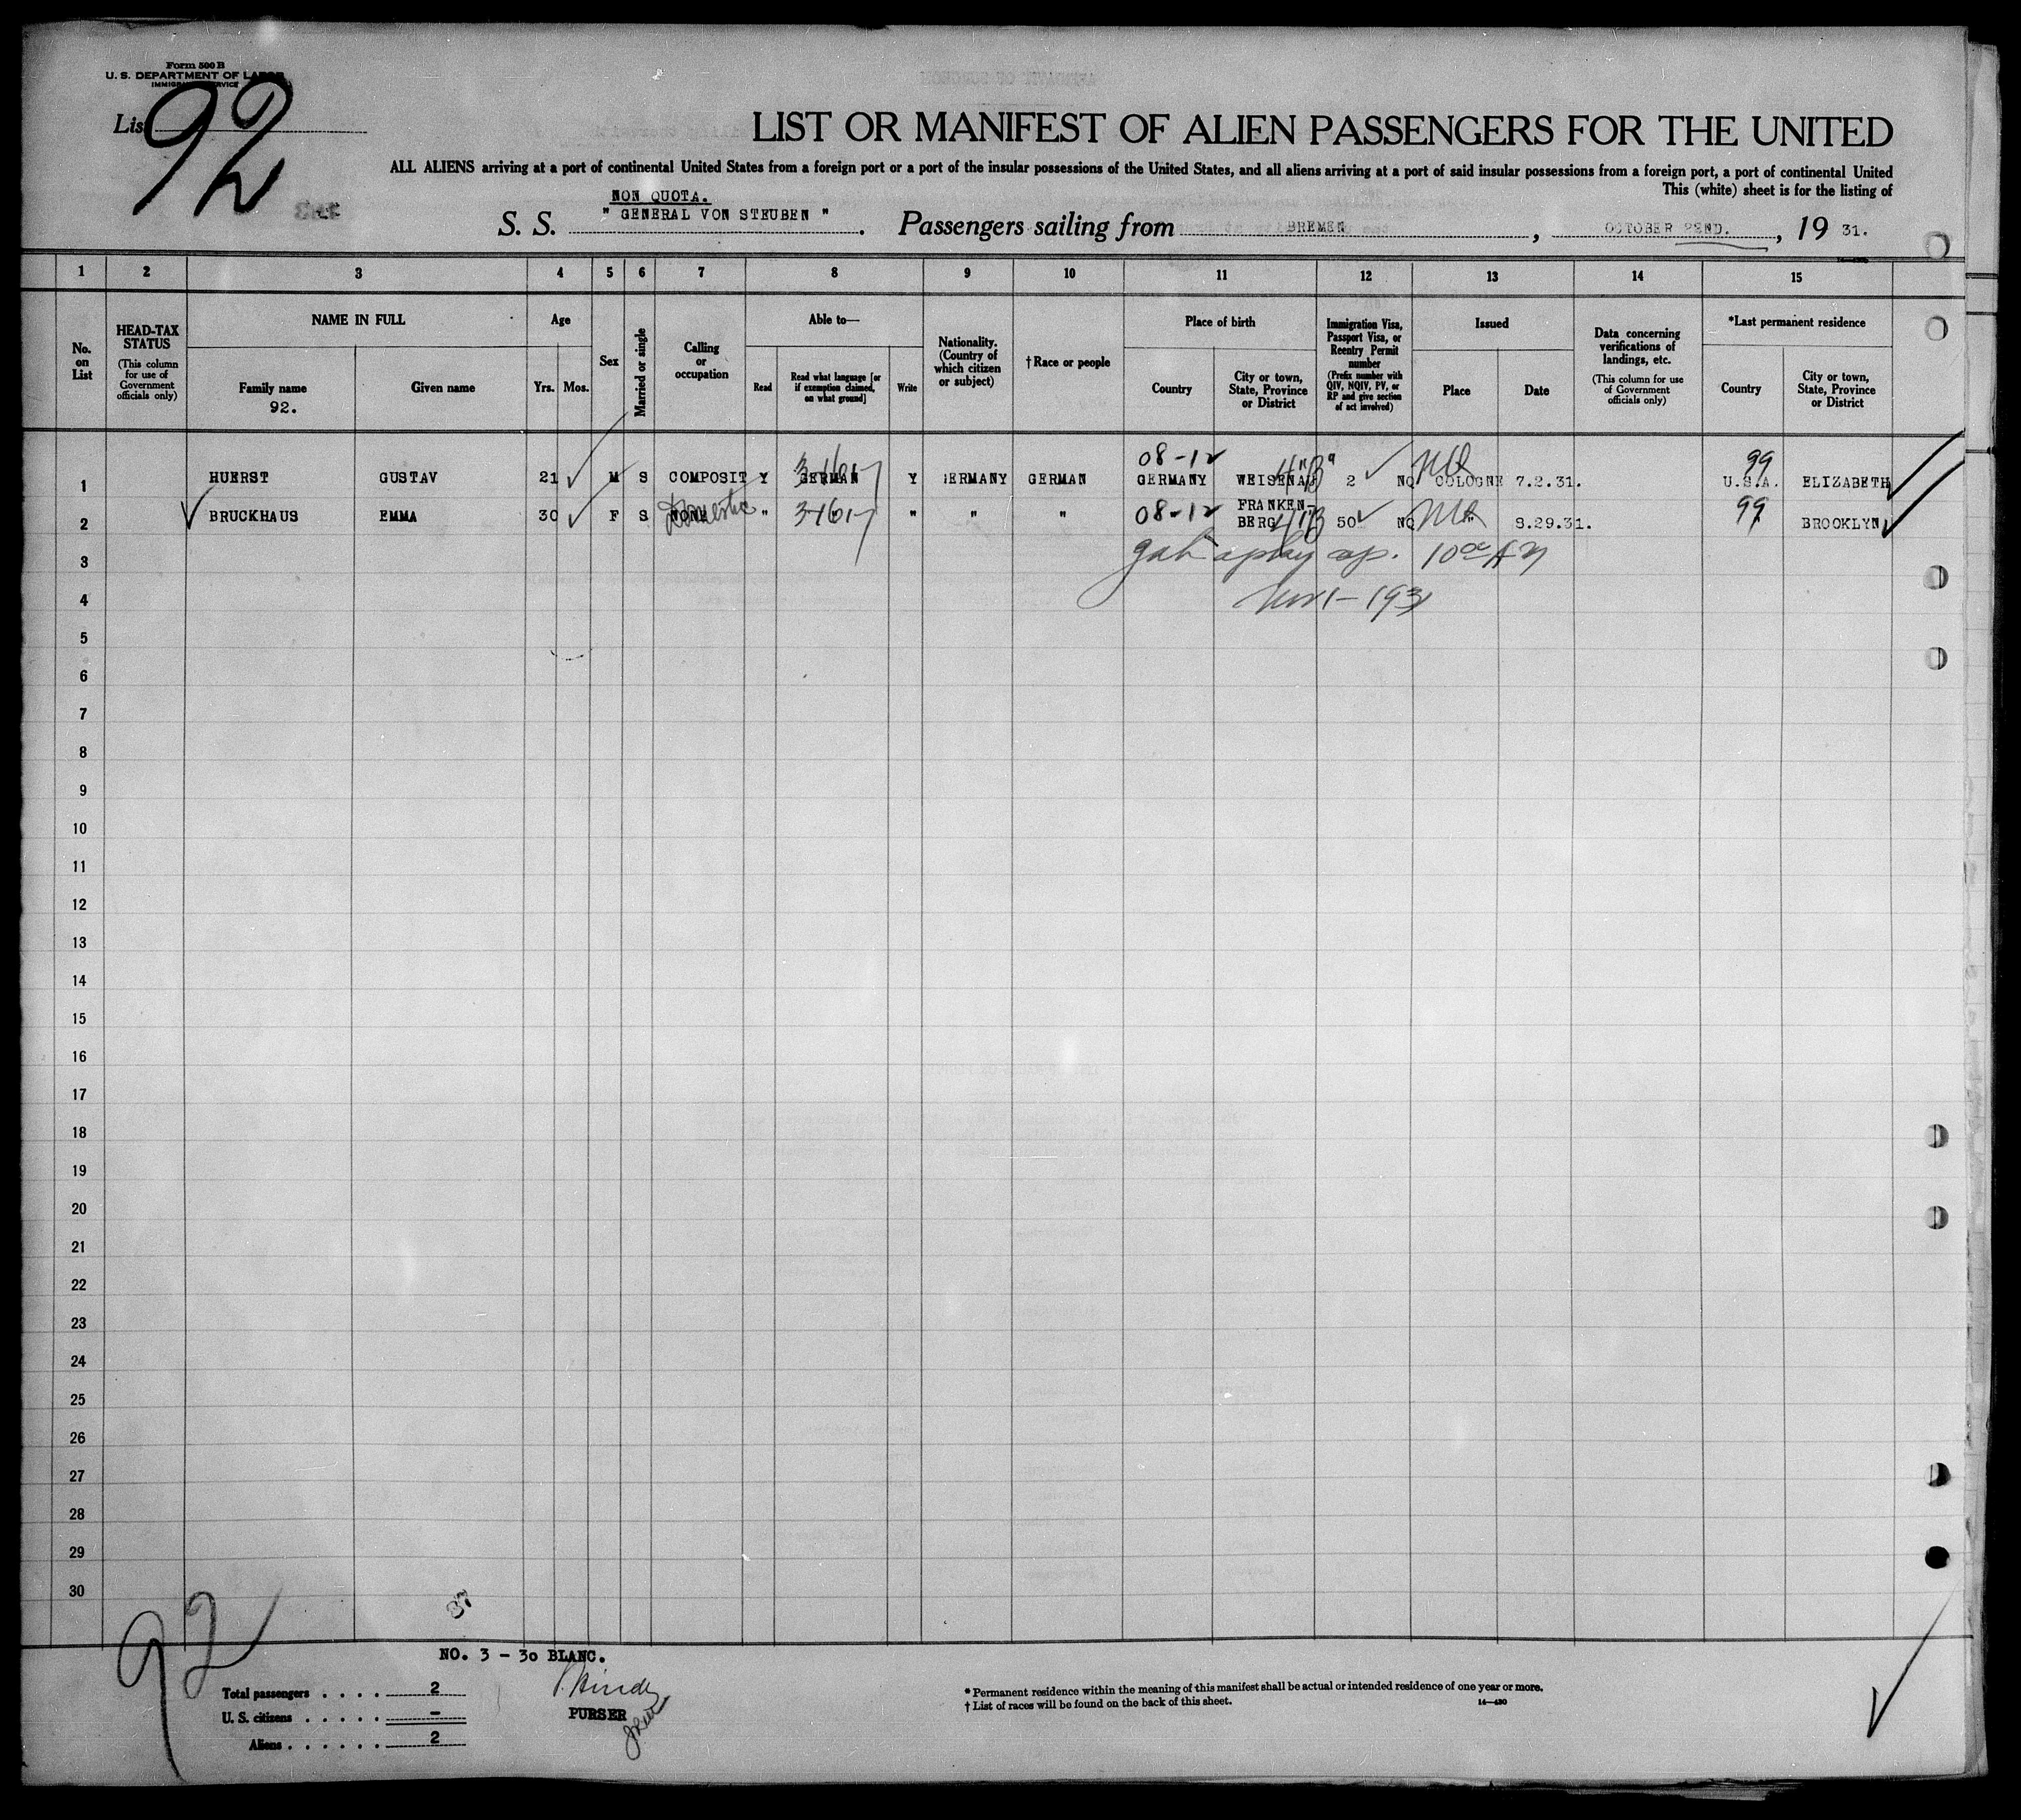 Form 500 B
U. S. DEPARTMENT OF LABOR
IMMIGRATION SERVICE
List 92
LIST OR MANIFEST OF ALIEN PASSENGERS FOR THE UNITED
ALL ALIENS arriving at a port of continental United States from a foreign port or a port of the insular possessions of the United States, and all aliens arriving at a port of said insular possessions from a foreign port, a port of continental United
This (white) sheet is for the listing of
NON QUOTA.
S. S. " GENERAL VON STEUBEN ". Passengers sailing from BREMEN, OCTOBER 22ND., 19 31.
1 2 3 4 5 6 7 8 9 10 11 12 13 14 15
No. on List
HEAD-TAX STATUS (This column for use of Government officials only)
NAME IN FULL
Family name
92.
Given name
Age
Yrs. Mos.
Sex
Married or single
Calling or occupation
Able to—
Read
Read what language [or if exemption claimed, on what ground]
Write
Nationality. (Country of which citizen or subject)
†Race or people
Place of birth
Country
City or town, State, Province or District
Immigration Visa, Passport Visa, or Reentry Permit number (Prefix number with QIV, NQIV, PV, or RP and give section of act involved)
Issued
Place
Date
Data concerning verifications of landings, etc. (This column for use of Government officials only)
*Last permanent residence
Country
City or town, State, Province or District
08-12 99
1 HUERST GUSTAV 21 M S COMPOSIT Y GERMAN Y GERMANY GERMAN GERMANY WEISENAU 4"B" 2 NQ COLOGNE 7.2.31. U.S.A. ELIZABETH
2 BRUCKHAUS EMMA 30 F S NONE Domestic " " " " " 08-12 FRANKEN-
BERG 50 NQ " 8.29.31. 99 BROOKLYN
3 10 00 AM
4 Nov 1-1931
5
6
7
8
9
10
11
12
13
14
15
16
17
18
19
20
21
22
23
24
25
26
27
28
29
30
37
92
NO. 3 - 30 BLANC.
Total passengers . . . . 2
U. S. citizens . . . . . -
Aliens . . . . . . 2
PURSER
* Permanent residence within the meaning of this manifest shall be actual or intended residence of one year or more.
† List of races will be found on the back of this sheet.
14—430